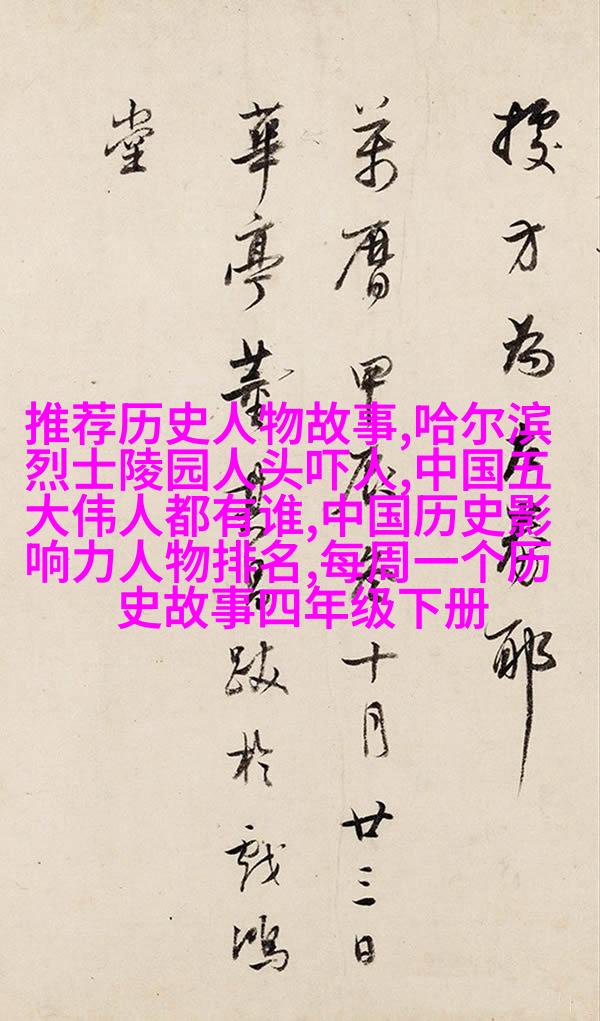 方為左券耶
萬曆甲辰冬十月廿三日
華亭董其昌跋於戲鴻
堂
推荐历史人物故事,哈尔滨
烈士陵园人头吓人,中国五
大伟人都有谁,中国历史影
响力人物排名,每周一个历
史故事四年级下册